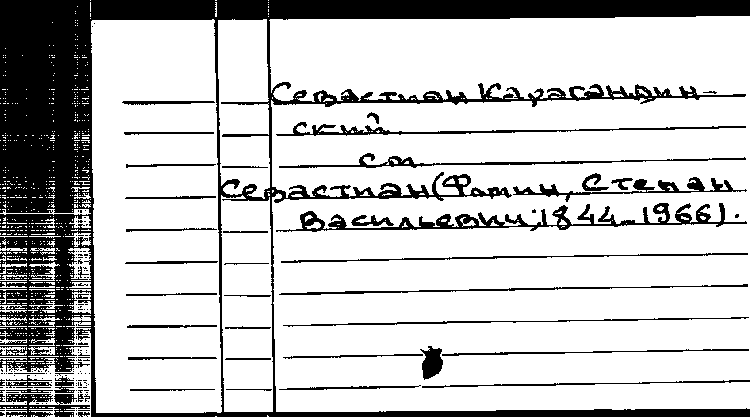 Севастиан Карагандин-
ский
см.
Севастиан (Фомин, Степан
Васильевич; 1844-1966).